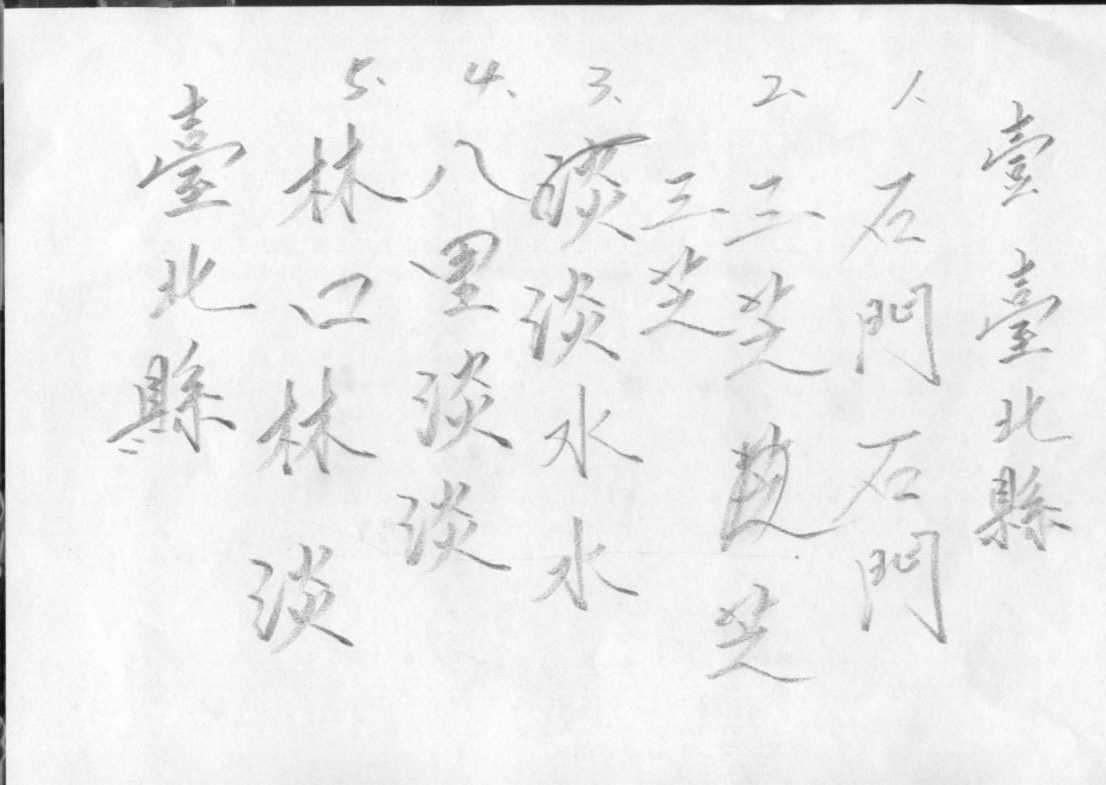 臺臺北縣
1、石門石門
2、三芝芝芝
三芝
3、淡淡水水
4、八里淡淡
5、林口林林淡
臺北縣